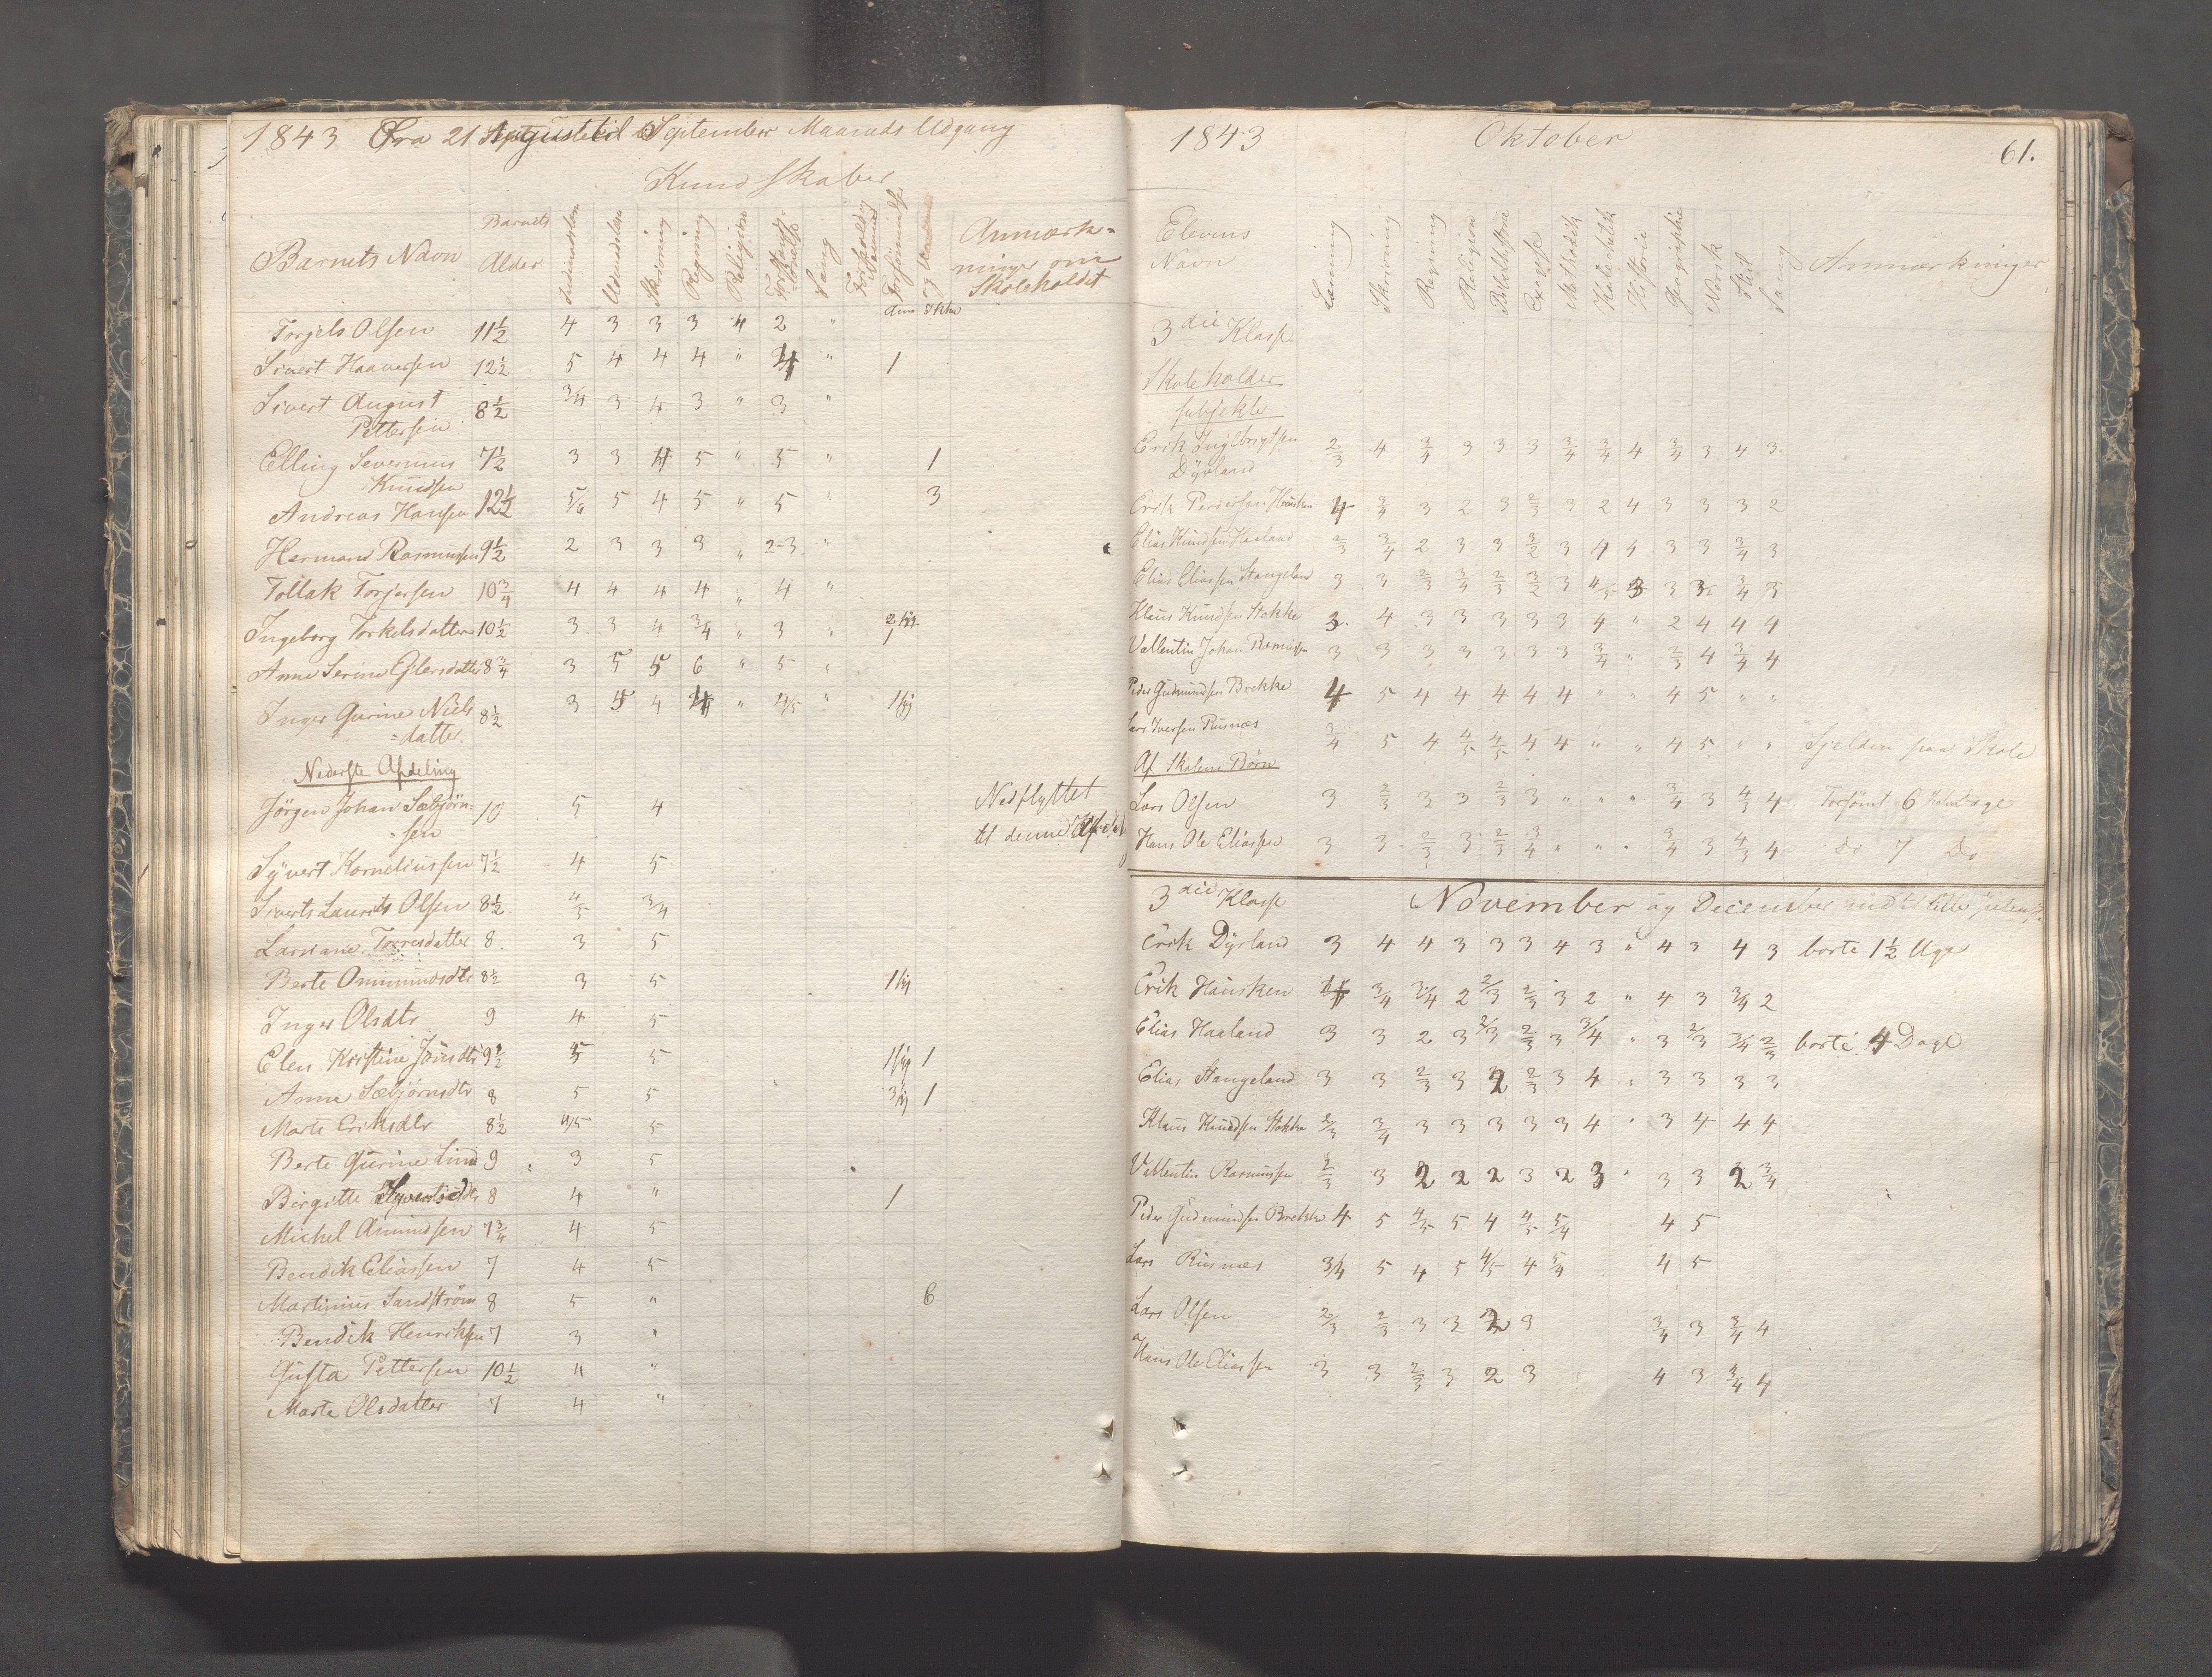 1843 Fra 21 August til September Maaneds Udgang
Kundskaber
Barnets Navn Barnets Alder Indenadslæsn Udenadslæsn Skrivning Regning Religion Sang Anmærk-
ninger om
Skoleholdet
Torjels Olsen 11½ 4 3 3 3 4 2 "
Sivert Haaversen 12½ 5 4 4 4 " 4 " 1
Sivert August 8½ 3/4 3 4 3 " 3 "
Pettersen
Elling Severinus 7½ 3 3 4 5 " 5 " 1
Knudsen
Andreas Hansen 12½ 5/6 5 4 5 " 5 " 3
Hermand Rasmussen 9½ 2 3 3 3 " 2-3 "
Tollak Torjersen 10¾ 4 4 4 4 " 4 "
Ingeborg Torkelsdatter 10½ 3 3 4 3/4 " 3 "
Anne Serine Glersdatter 8¾ 3 5 5 6 " 5 "
Inger Gurine Niels 8½ 3 5 4 4 " 4/5 "
=datter
Nederste Afdeling
Jörgen Johan Sæbjörn- 10 5 4 Nedflyttet
sen til denne Afdel
Syvert Korneliussen 7½ 4 5
Siverts Laurits Olsen 8½ 4/5 3/4
Larsiane Torresdatter 8 3 5
Berte Ommundsdtr 8½ 3 5
Inger Olsdtr 9 4 5
Elen Kristine Jonsdtr 9½ 5 5 1
Anne Sæbjörnsdtr 8 5 5 1
Marte Eriksdtr 8½ 4/5 5
Berte Gurine Lind 9 3 5
Birgitte Syvertsdtr 8 4 " 1
Michel Amundsen 7¾ 4 5
Bendik Eliassen 7 4 5
Martinius Sandström 8 5 " 6
Bendik Henriksen 7 3 "
Gusta Pettersen 10½ 4 "
Marte Olsdatter 7 4 "
1843 Oktober 61.
Elevens
Navn Læsning Skrivning Regning Religion Bibelhistorie Exegese Methodik Katechetik Historie Geographie Norsk Stil Sang Anmærkninger
3die Klasse
Skoleholder
subjekter
Erik Ingebrigtsen 2/3 4 3/4 3 3 3 3/4 3/4 4 3/4 3 4 3
Dyrland
Erik Pedersen Hausken 4 3/4 3 2 3 2/3 3 2 4 3 3 3 2
Elias Knudsen Haaland 2/3 3/4 2 3 3 3/2 3 4 4 3 3 3/4 3
Elias Eliassen Stangeland 3 3 2/3 3/4 2/3 3/2 3 4/5 3 3 3 3/4 3
Klaus Knudsen Stokke 3 4 3 3 3 3 3 4 " 2 4 4 4
Vallentin Johan Rasmusen 3 3 3 3 3 3 3 3/4 " 2/3 4 3/4 4
Peder Gudmundsen Brekke 4 5 4 4 4 4 4 " " 4 5 " "
Lars Iversen Rusnæs 3/4 5 4 4/5 4/5 4 4 " " 4 5 " " Sjelden paa Skole
Af Skolens Börn
Lars Olsen 3 2/3 3 3 2/3 3 " " " 3/4 3 4/3 4 Forsömt 6 halve Dage
Hans Ole Eliassen 3 3 2/3 3 2/3 3/4 " " " 3/4 3 4/3 4 do 7 Do
3die Klasse November og December
Erik Dyrland 3 4 4 3 3 3 4 3 " 4 3 4 3 borte 1½ Uge
Erik Hausken 3/4 3/4 2 2/3 2/3 3 2 " 4 3 3/4 2
Elias Haaland 3 3 2 3 2/3 2/3 3 3/4 " 3 2/3 3/4 2/3 borte 4 Dage
Elias Stangeland 3 3 2/3 3 2 2/3 3 4 " 3 3 3 3
Klaus Knudsen Stokke 2/3 3/4 3 3 3 3 3 4 " 3 4 4 4
Vallentin Rasmussen 2/3 3 2 2 2 3 2 3 " 3 3 2 3/4
Peder Gudmundsen Brekke 4 5 4/5 5 4 4/5 5/4 4 5
Lars Rusnæs 3/4 5 4 5 4/5 4 5/4 4 5
Lars Olsen 2/3 2/3 3 3 2 3 3/4 3 3/4 4
Hans Ole Eliassen 3 3 2/3 3 2 3 4 3 3/4 4